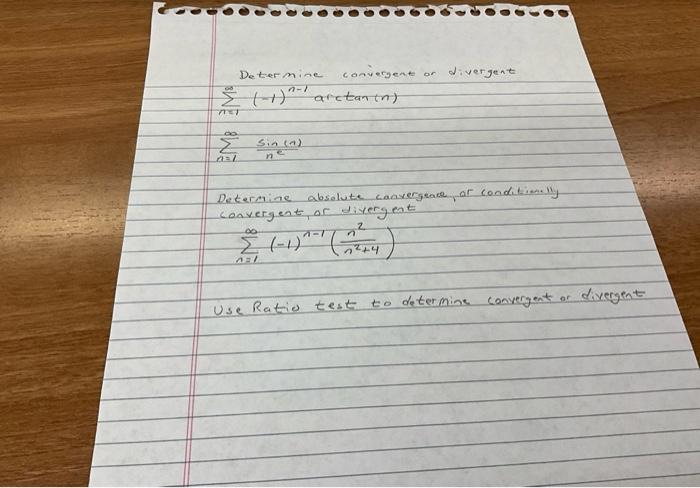 Determine convergent or divergent
∞
Σ (-1)ⁿ⁻¹ arctan(n)
n=1
∞
Σ sin(n)/nᵉ
n=1
Determine absolute convergence, or conditionally
convergent, or divergent
∞
Σ (-1)ⁿ⁻¹ (n²/n²+4)
n=1
Use Ratio test to determine convergent or divergent